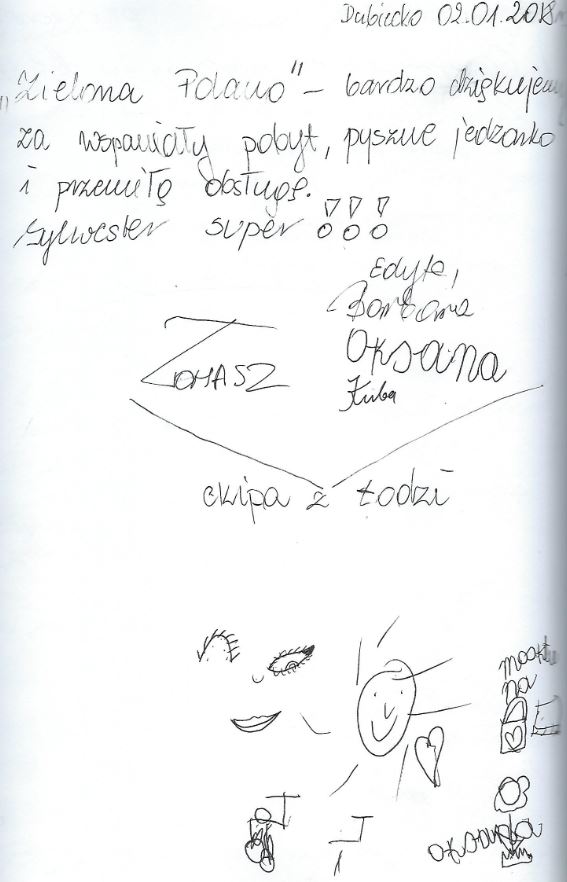 Dubiecko 02.01.2018
„Zielona Polano" – bardzo dziękujemy
za wspaniały pobyt, pyszne jedzonko
i przemiłą obsługę.
Sylwester super !!!
Edyta,
Barbara
Oksana
Kuba
TOMASZ
ekipa z Łodzi
na
oksana